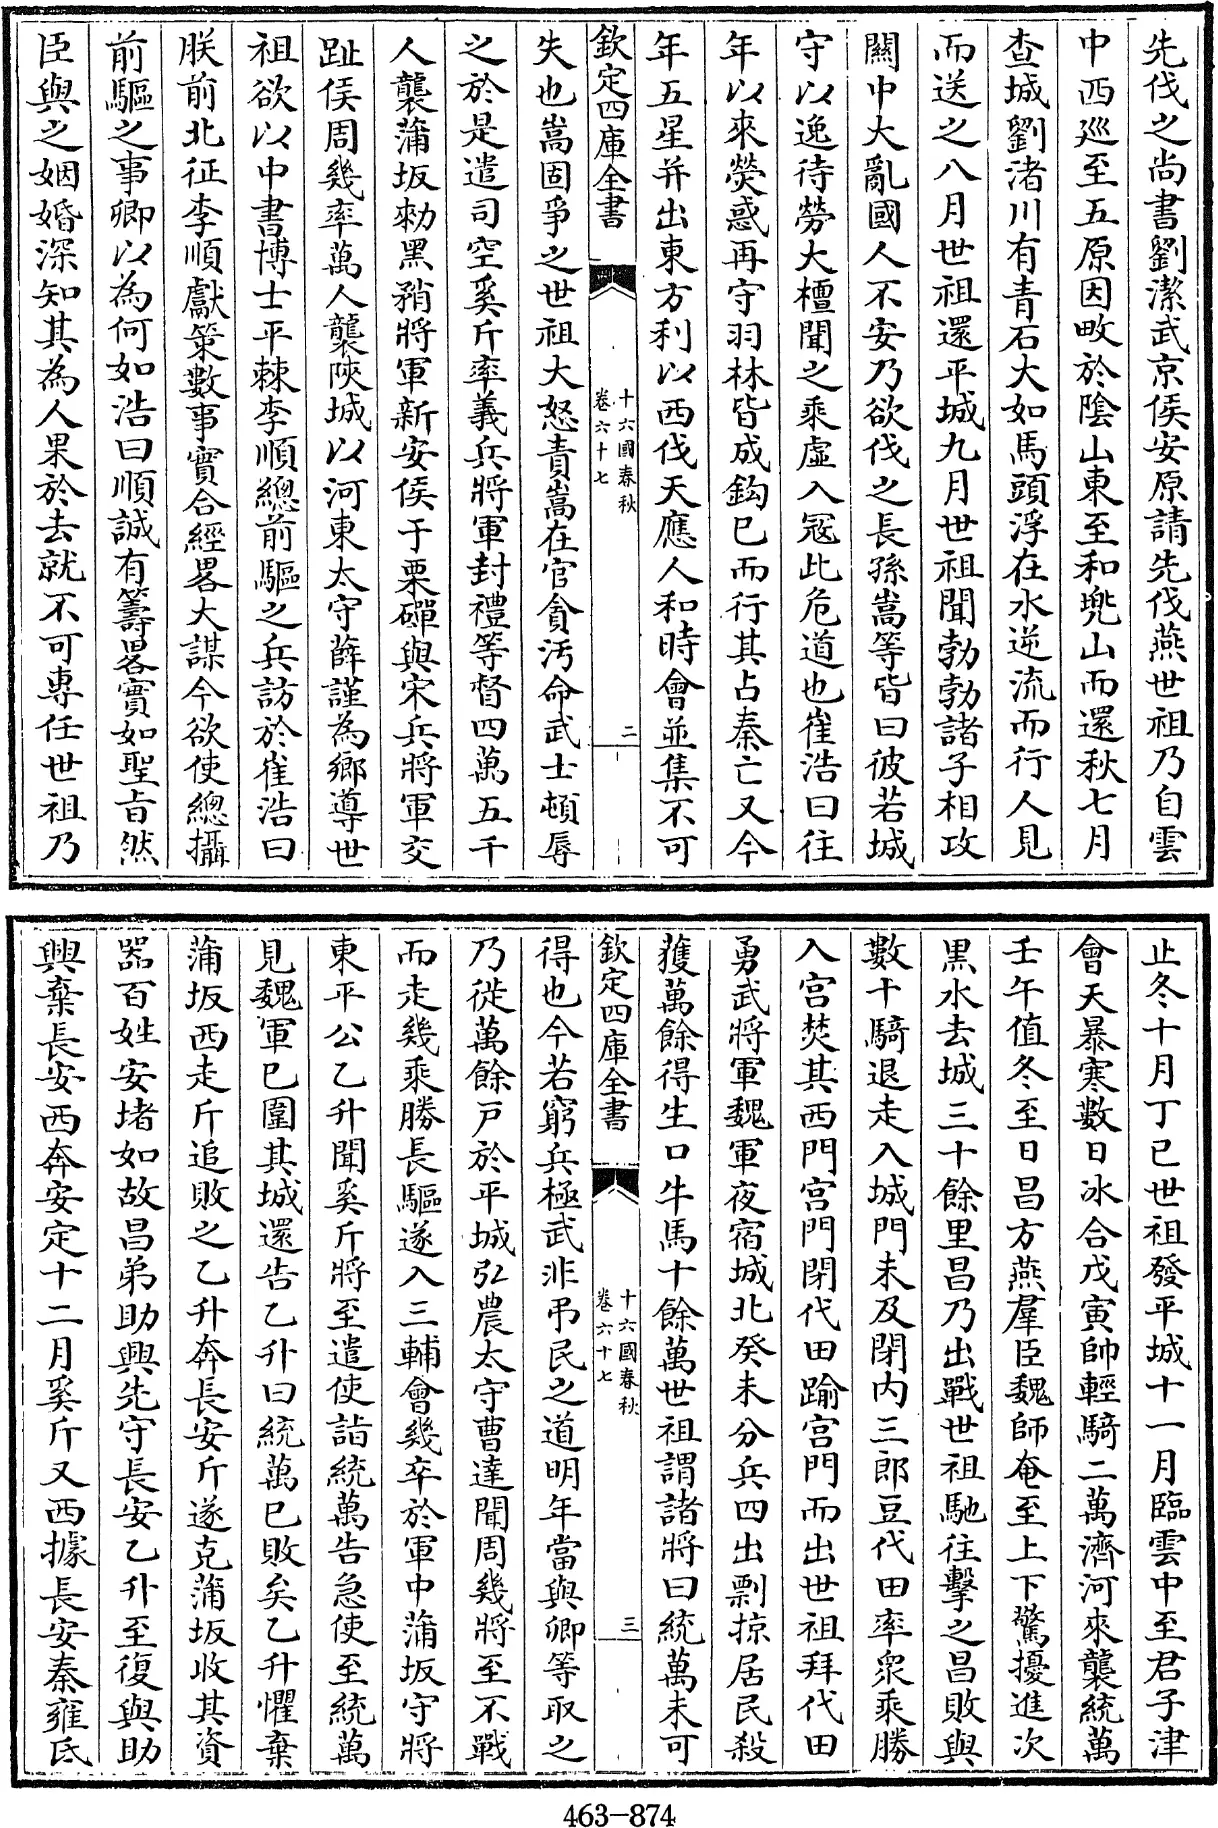 先伐之尚書劉潔武京侯安原請先伐燕世祖乃自雲
中西廵至五原因畋於陰山東至和兜山而還秋七月
查城劉渚川有青石大如馬頭浮在水逆流而行人見
而送之八月世祖還平城九月世祖聞勃勃諸子相攻
闗中大亂國人不安乃欲伐之長孫嵩等皆曰彼若城
守以逸待勞大檀聞之乘虛入冦此危道也崔浩曰往
年以來熒惑再守羽林皆成鈎已而行其占秦亡又今
年五星并出東方利以西伐天應人和時會並集不可
欽定四庫全書
十六國春秋
卷六十七
二
失也嵩固爭之世祖大怒責嵩在官貪汚命武士頓辱
之於是遣司空奚斤率義兵將軍封禮等督四萬五千
人襲蒲坂勑黑矟將軍新安侯于栗磾與宋兵將軍交
趾侯周幾率萬人襲陜城以河東太守薛謹為鄉導世
祖欲以中書博士平棘李順總前驅之兵訪於崔浩曰
朕前北征李順獻策數事實合經畧大謀今欲使總攝
前驅之事卿以為何如浩曰順誠有籌畧實如聖㫖然
臣與之姻婚深知其為人果於去就不可專任世祖乃
止冬十月丁巳世祖發平城十一月臨雲中至君子津
會天暴寒數日冰合戊寅帥輕騎二萬濟河來襲統萬
壬午值冬至日昌方燕羣臣魏師奄至上下驚擾進次
黒水去城三十餘里昌乃出戰世祖馳往擊之昌敗與
數千騎退走入城門未及閉内三郎豆代田率衆乘勝
入宫焚其西門宫門閉代田踰宫門而出世祖拜代田
勇武將軍魏軍夜宿城北癸未分兵四出剽掠居民殺
獲萬餘得生口牛馬十餘萬世祖謂諸將曰統萬未可
欽定四庫全書
十六國春秋
卷六十七
三
得也今若窮兵極武非弔民之道明年當與卿等取之
乃徙萬餘戸於平城弘農太守曹達聞周幾將至不戰
而走幾乘勝長驅遂入三輔會幾卒於軍中蒲坂守將
東平公乙升聞奚斤將至遣使詣統萬告急使至統萬
見魏軍已圍其城還告乙升曰統萬已敗矣乙升懼棄
蒲坂西走斤追敗之乙升奔長安斤遂克蒲坂收其資
器百姓安堵如故昌弟助興先守長安乙升至復與助
興棄長安西奔安定十二月奚斤又西據長安秦雍氐
463-874